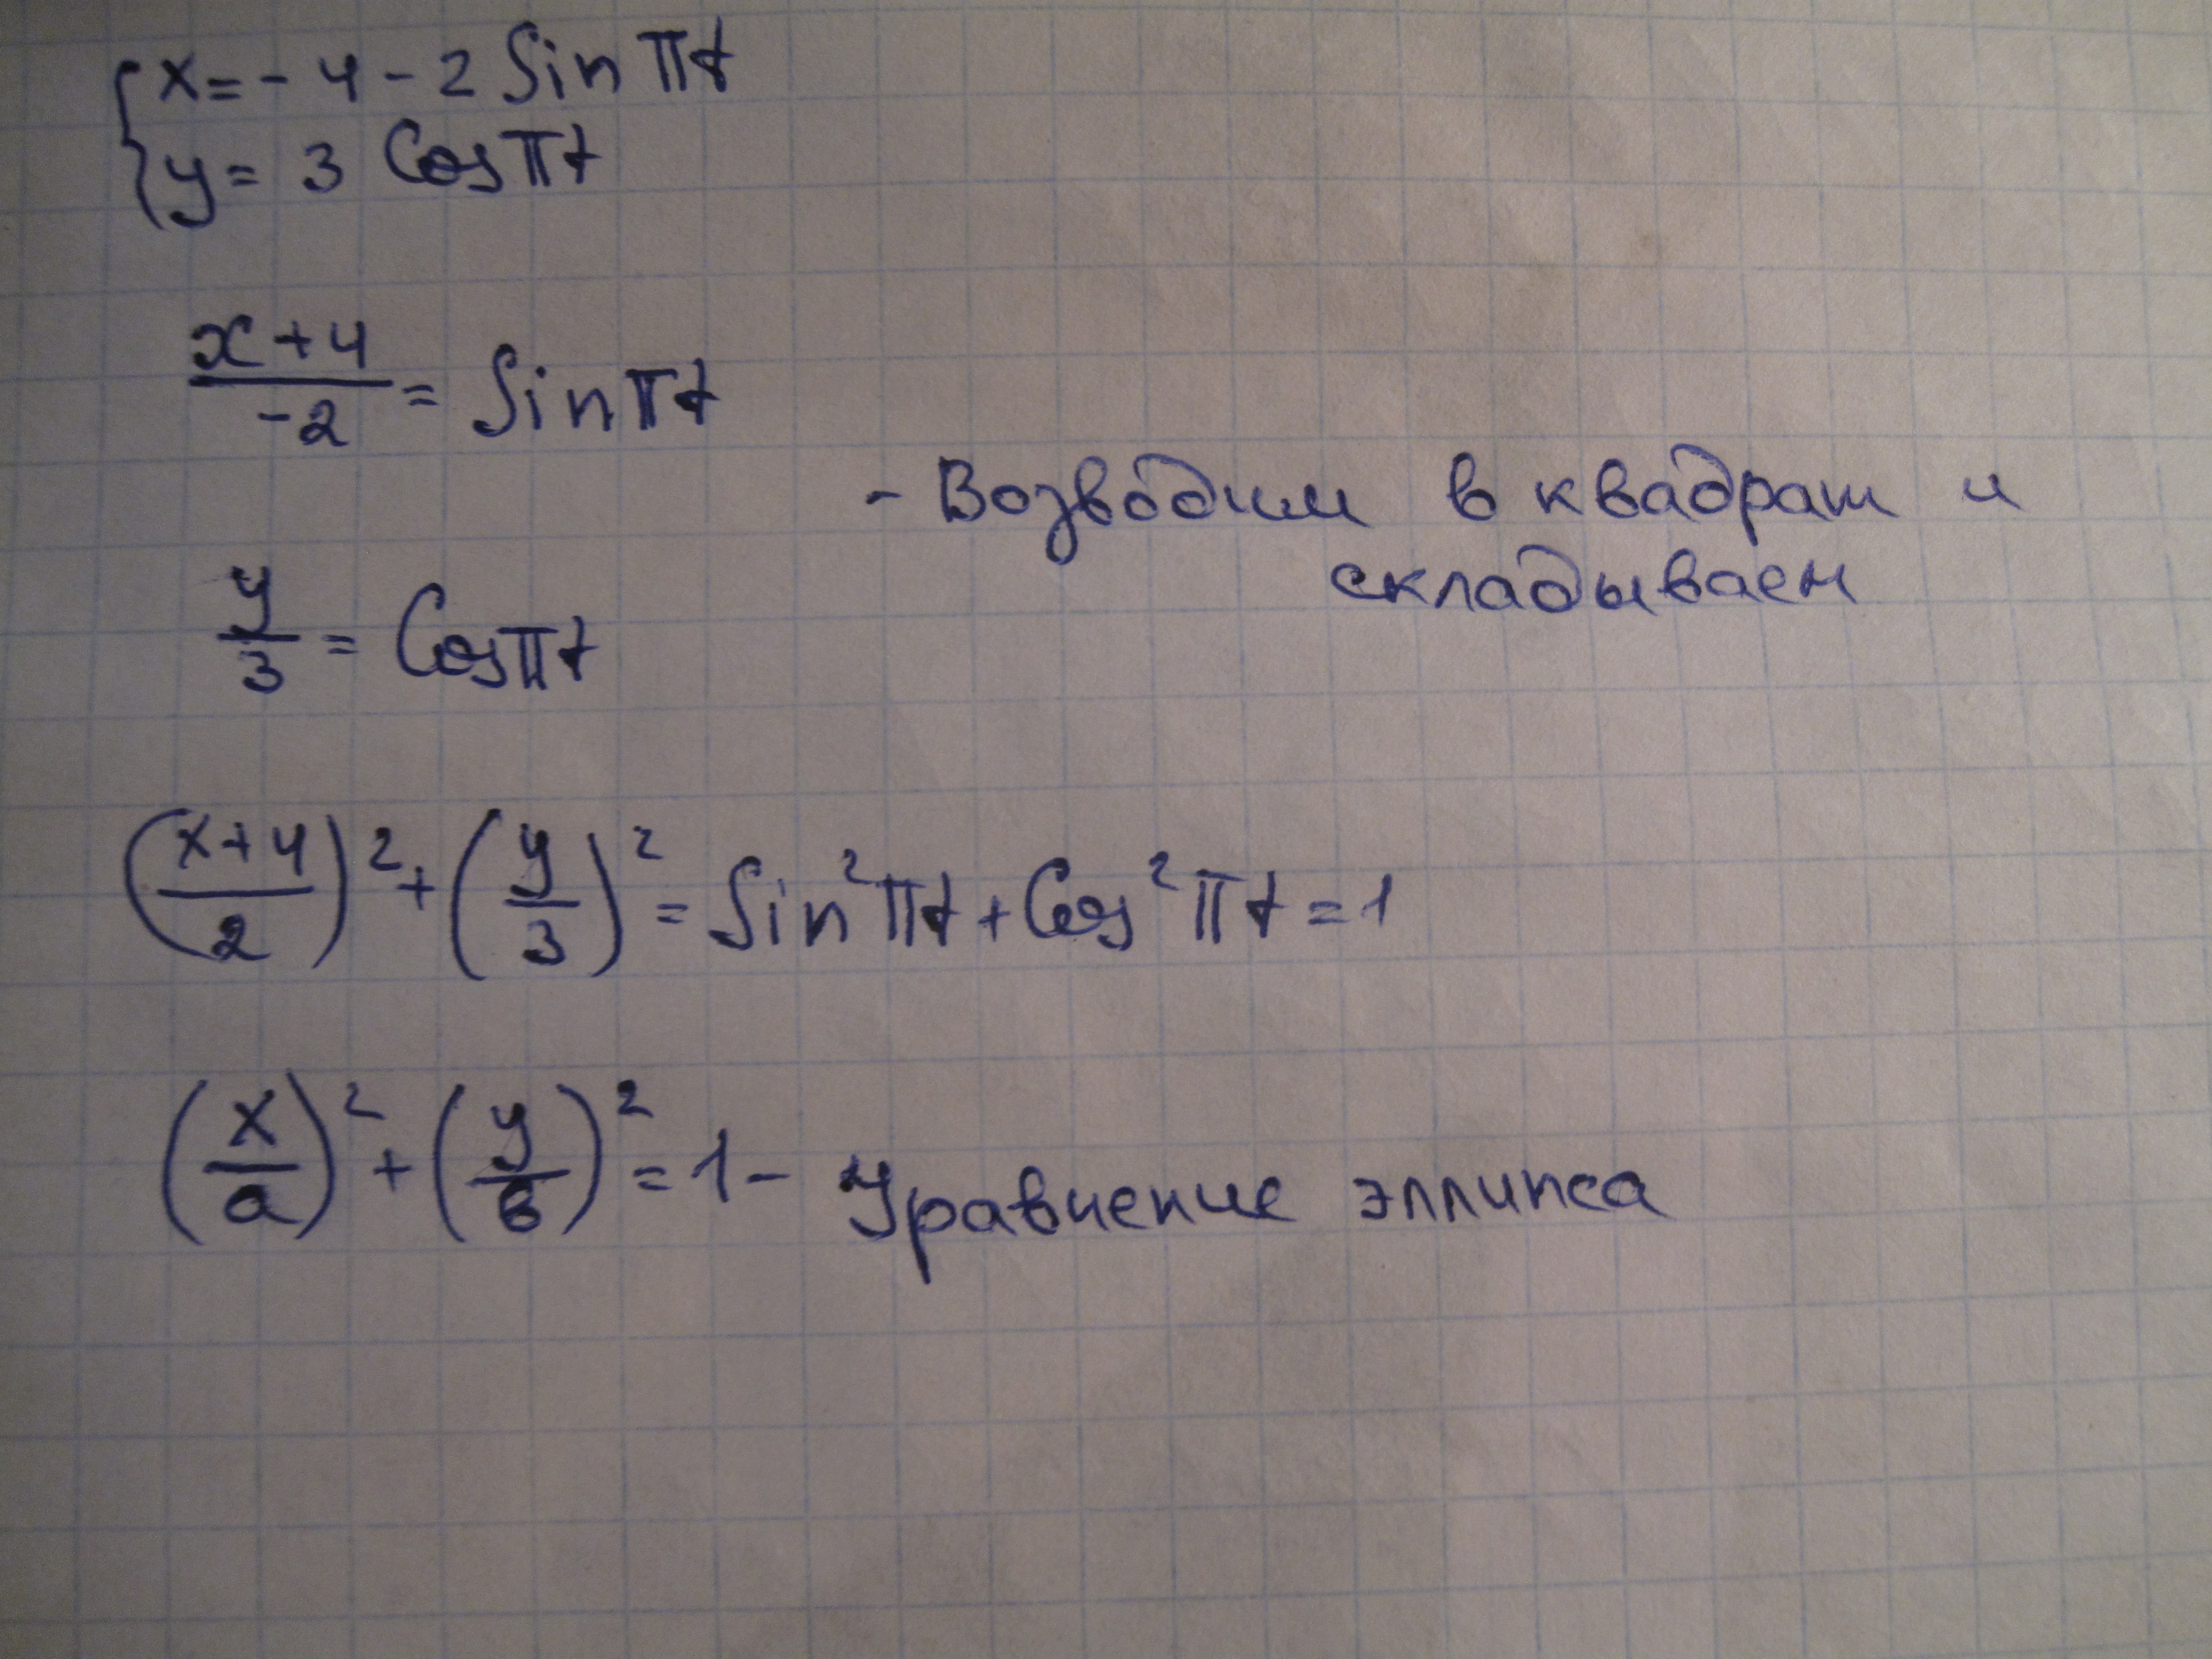 {x = - 4 - 2 Sin πt
{y = 3 Cos πt
(x+4)/(-2) = Sin πt
- Возводим в квадрат и
складываем
y/3 = Cos πt
((x+4)/2)² + (y/3)² = Sin² πt + Cos² πt = 1
(x/a)² + (y/в)² = 1 - Уравнение эллипса